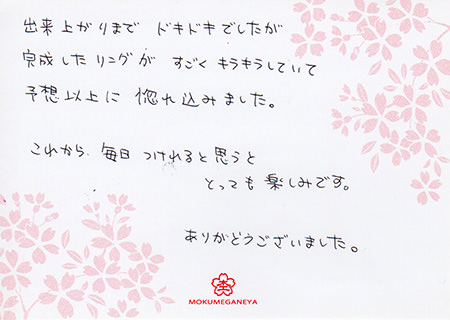 出来上がりまで ドキドキでしたが
完成したリングが すごく キラキラしていて
予想以上に 惚れ込みました。
これから、毎日 つけれると思うと
とっても 楽しみです。
ありがとうございました。
MOKUMEGANEYA